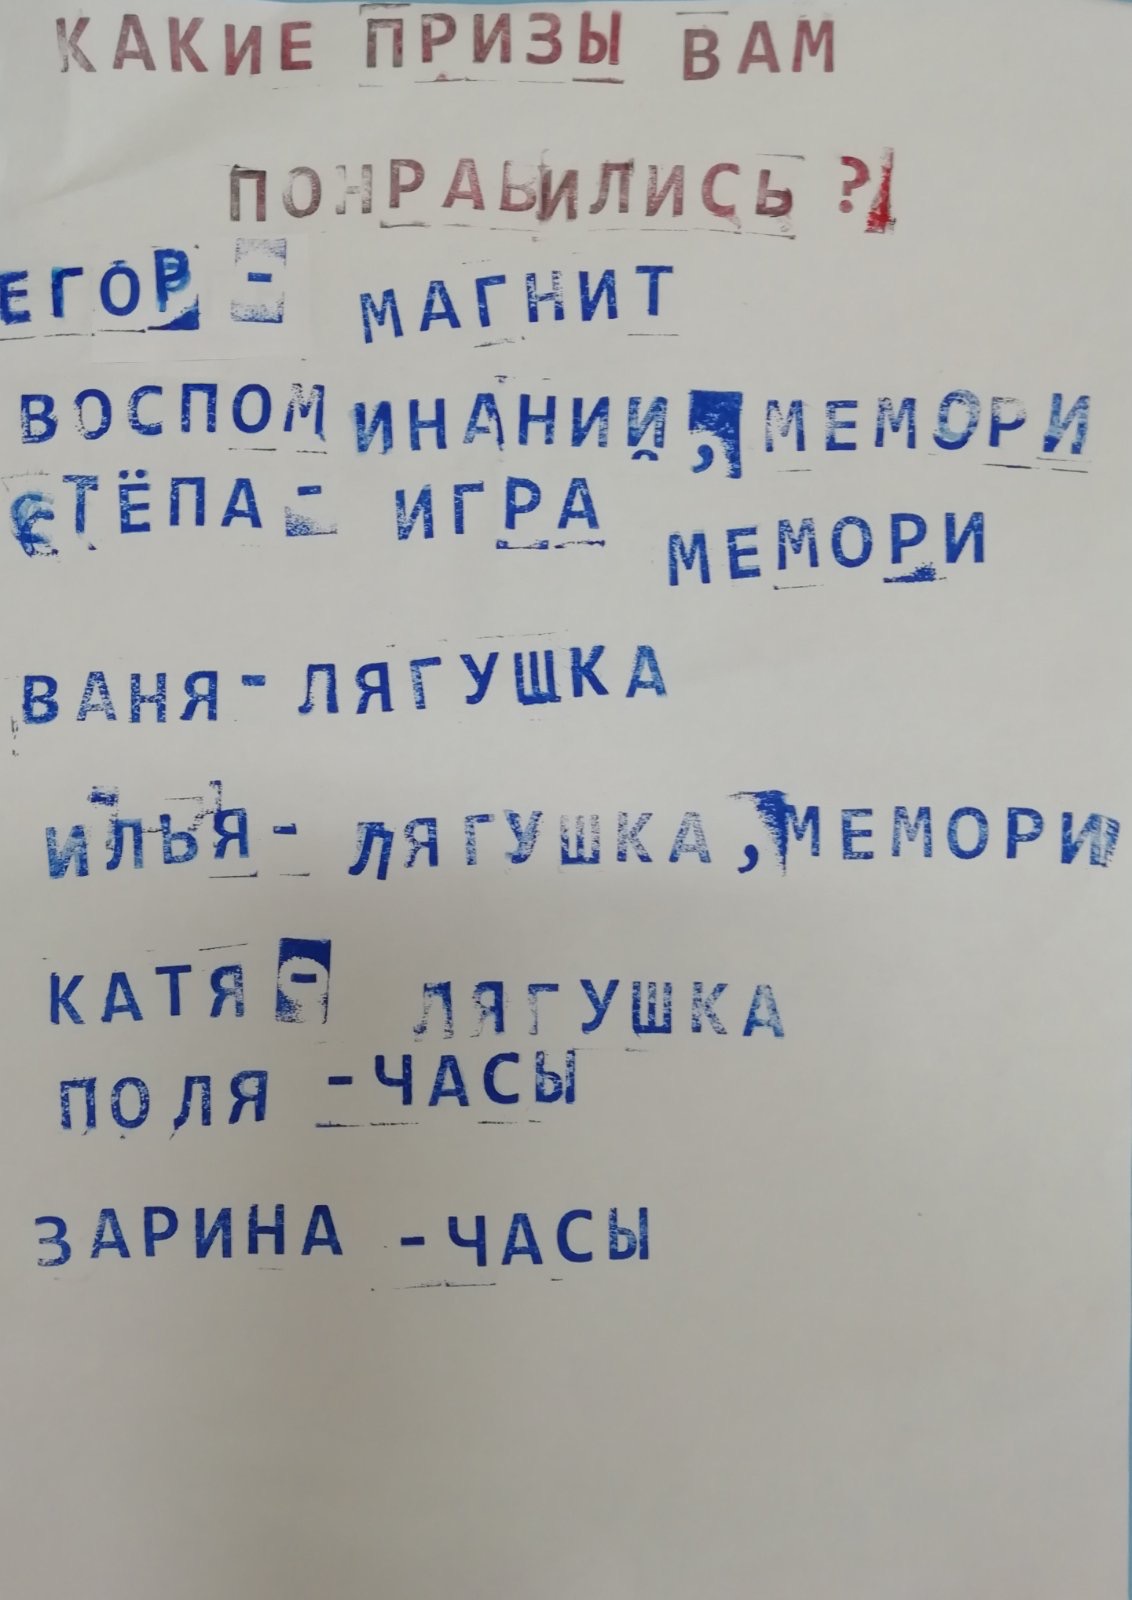 КАКИЕ ПРИЗЫ ВАМ
ПОНРАВИЛИСЬ ?
ЕГОР - МАГНИТ
ВОСПОМИНАНИЙ, МЕМОРИ
СТЁПА - ИГРА
МЕМОРИ
ВАНЯ - ЛЯГУШКА
ИЛЬЯ - ЛЯГУШКА, МЕМОРИ
КАТЯ - ЛЯГУШКА
ПОЛЯ - ЧАСЫ
ЗАРИНА - ЧАСЫ